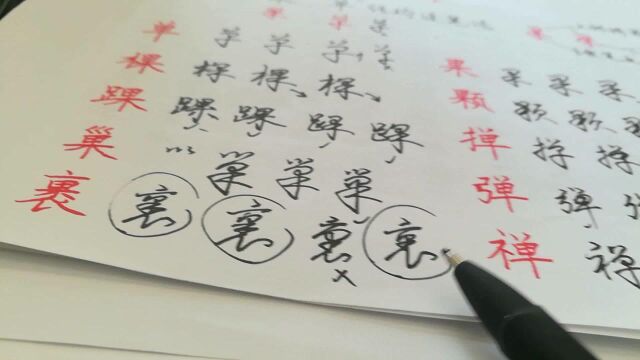 单 单 单 单 单
棵 棵 棵 棵
踝 踝 踝 踝 踝
巢 巢 巢 巢
裹 裹 裹 裹 裹
果 果 果 果
颗 颗 颗
掸 掸 掸
弹 弹
禅 禅